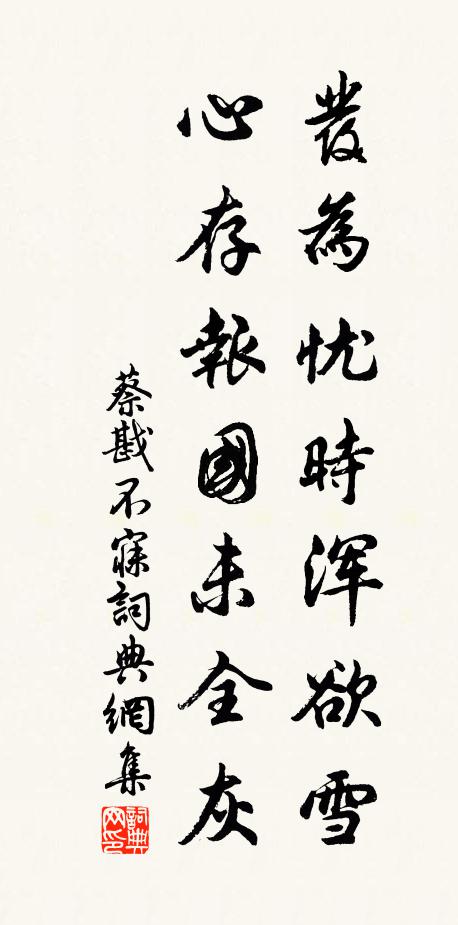 發為忧時浑欲雪
心存報國未全灰
蔡戡不寐詞典網集
詞典
网印